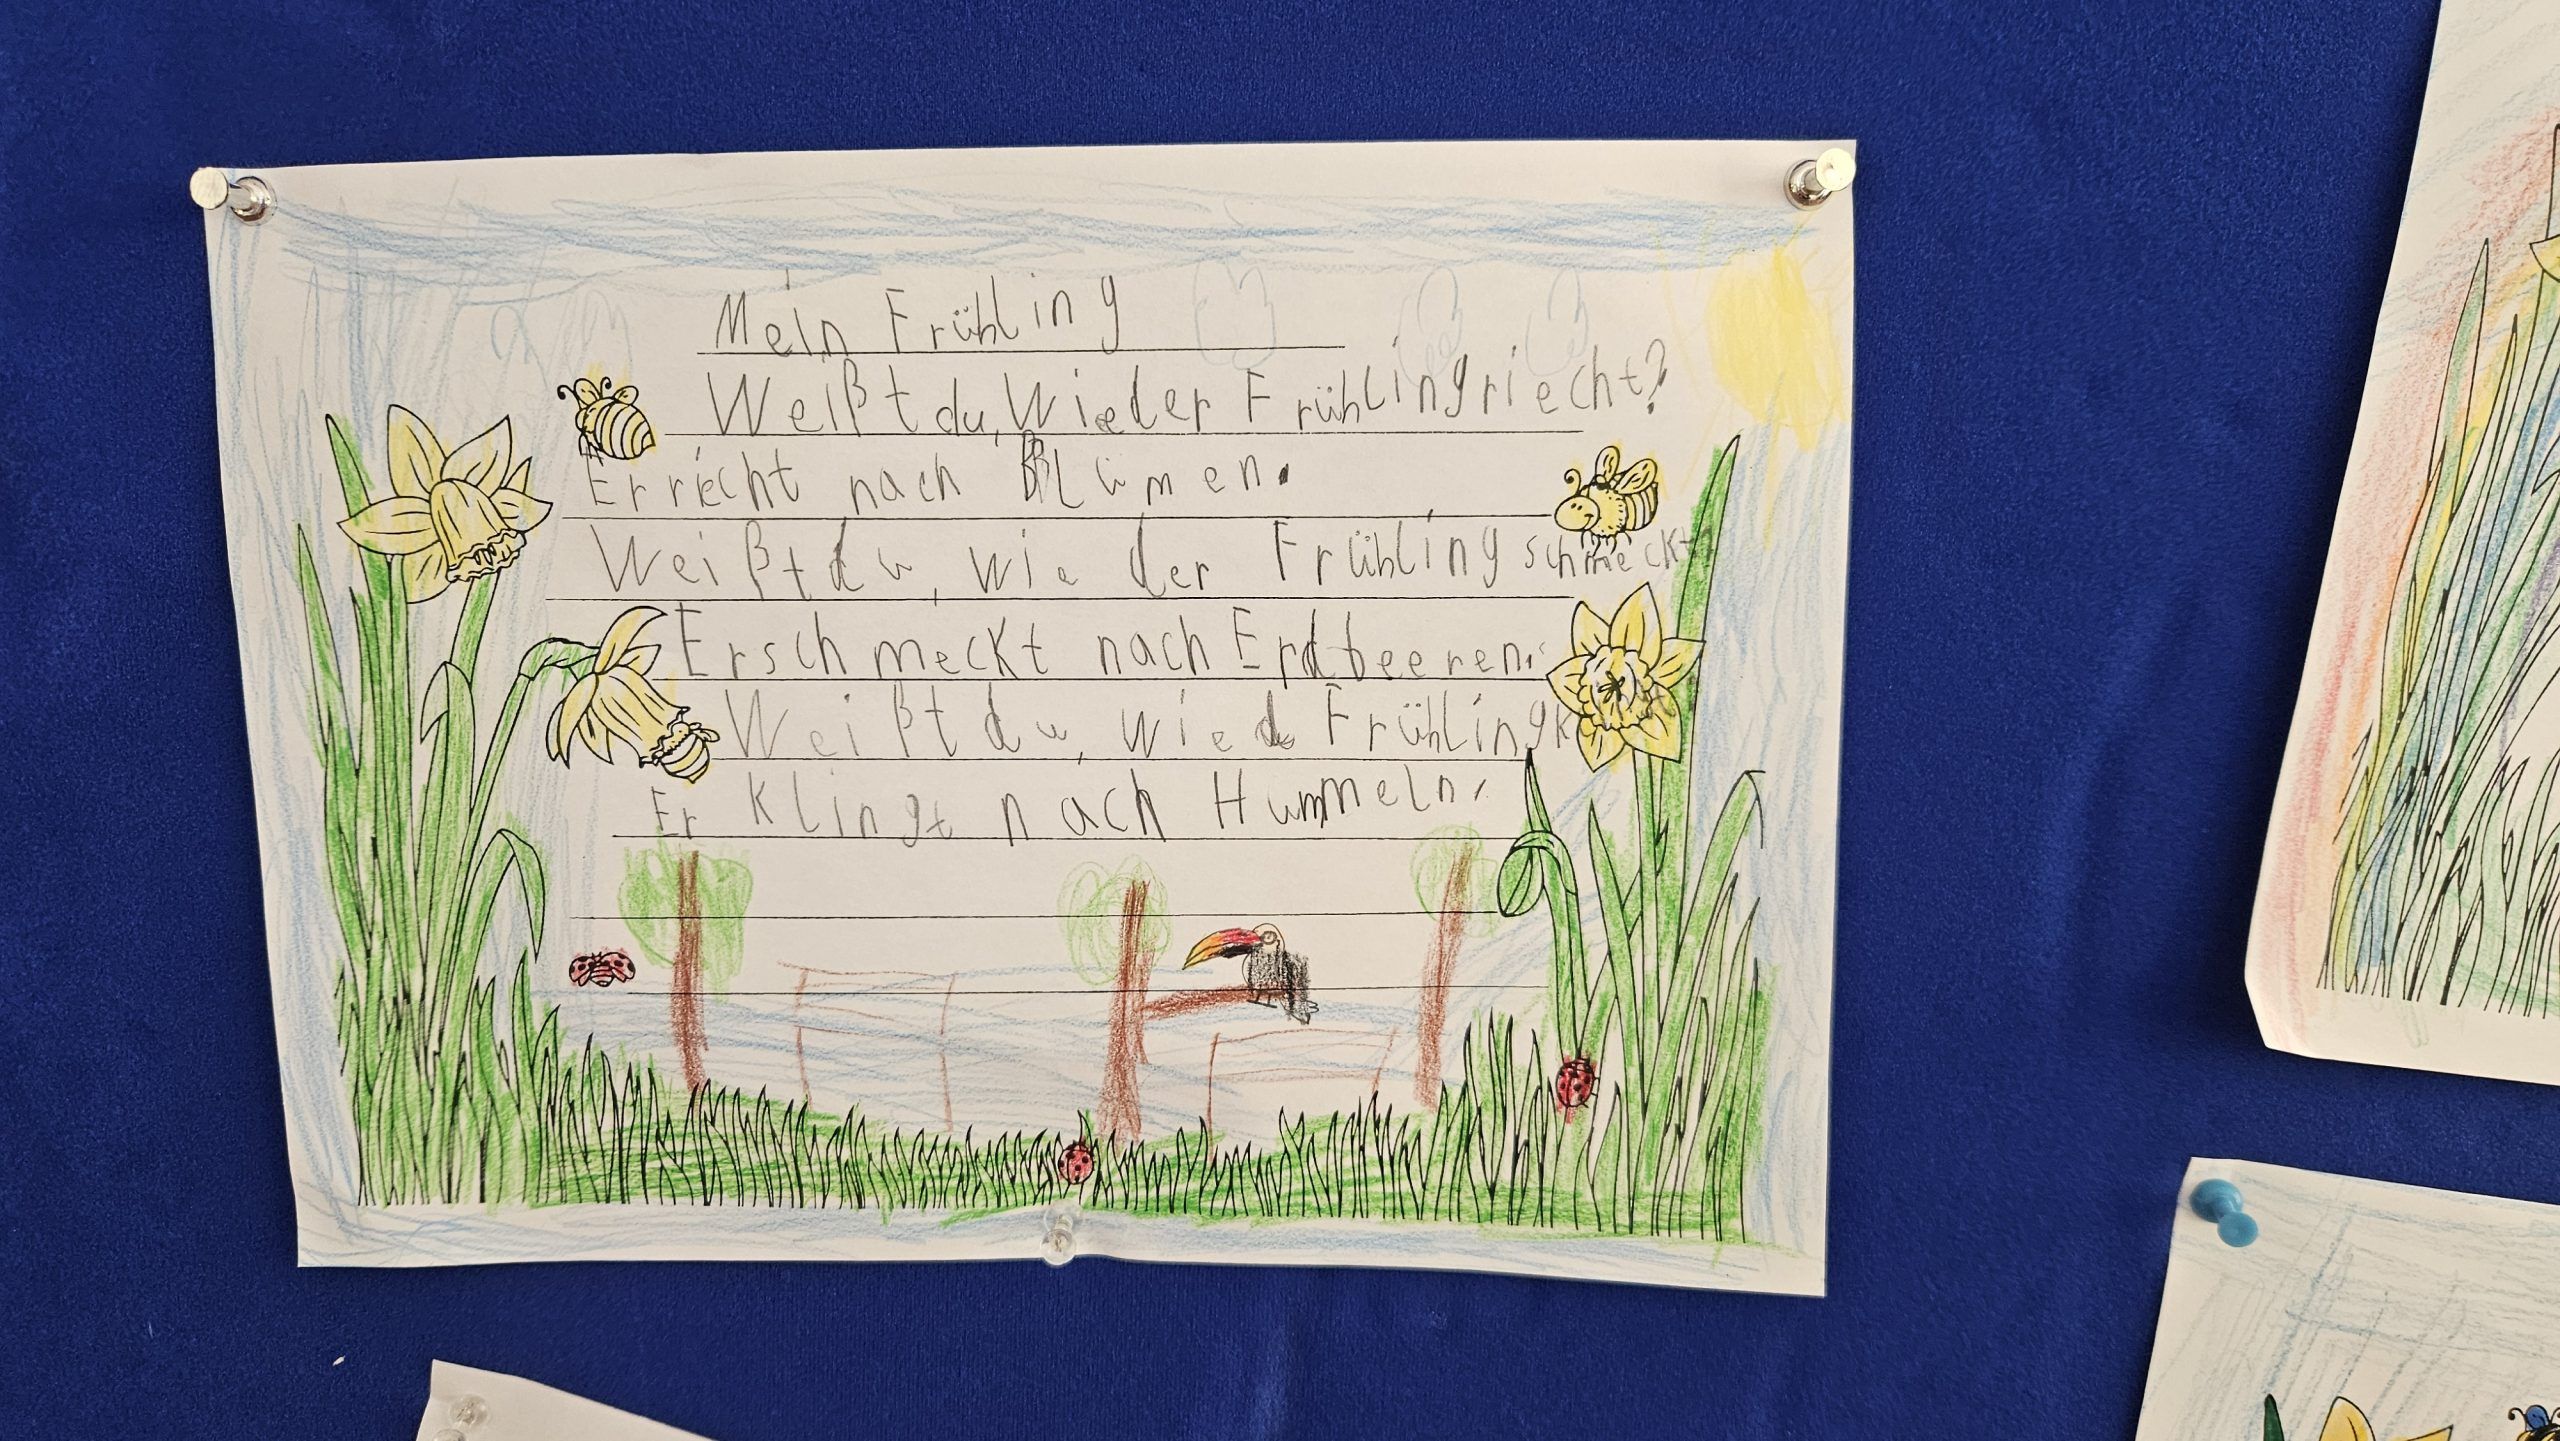 Mein Frühling
Weißt du, Wie der Frühling riecht?
Er riecht nach Blumen.
Weißt du, wie der Frühling schmeckt?
Er schmeckt nach Erdbeeren.
Weißt du, wie d Frühling
Er klingt nach Hummeln.